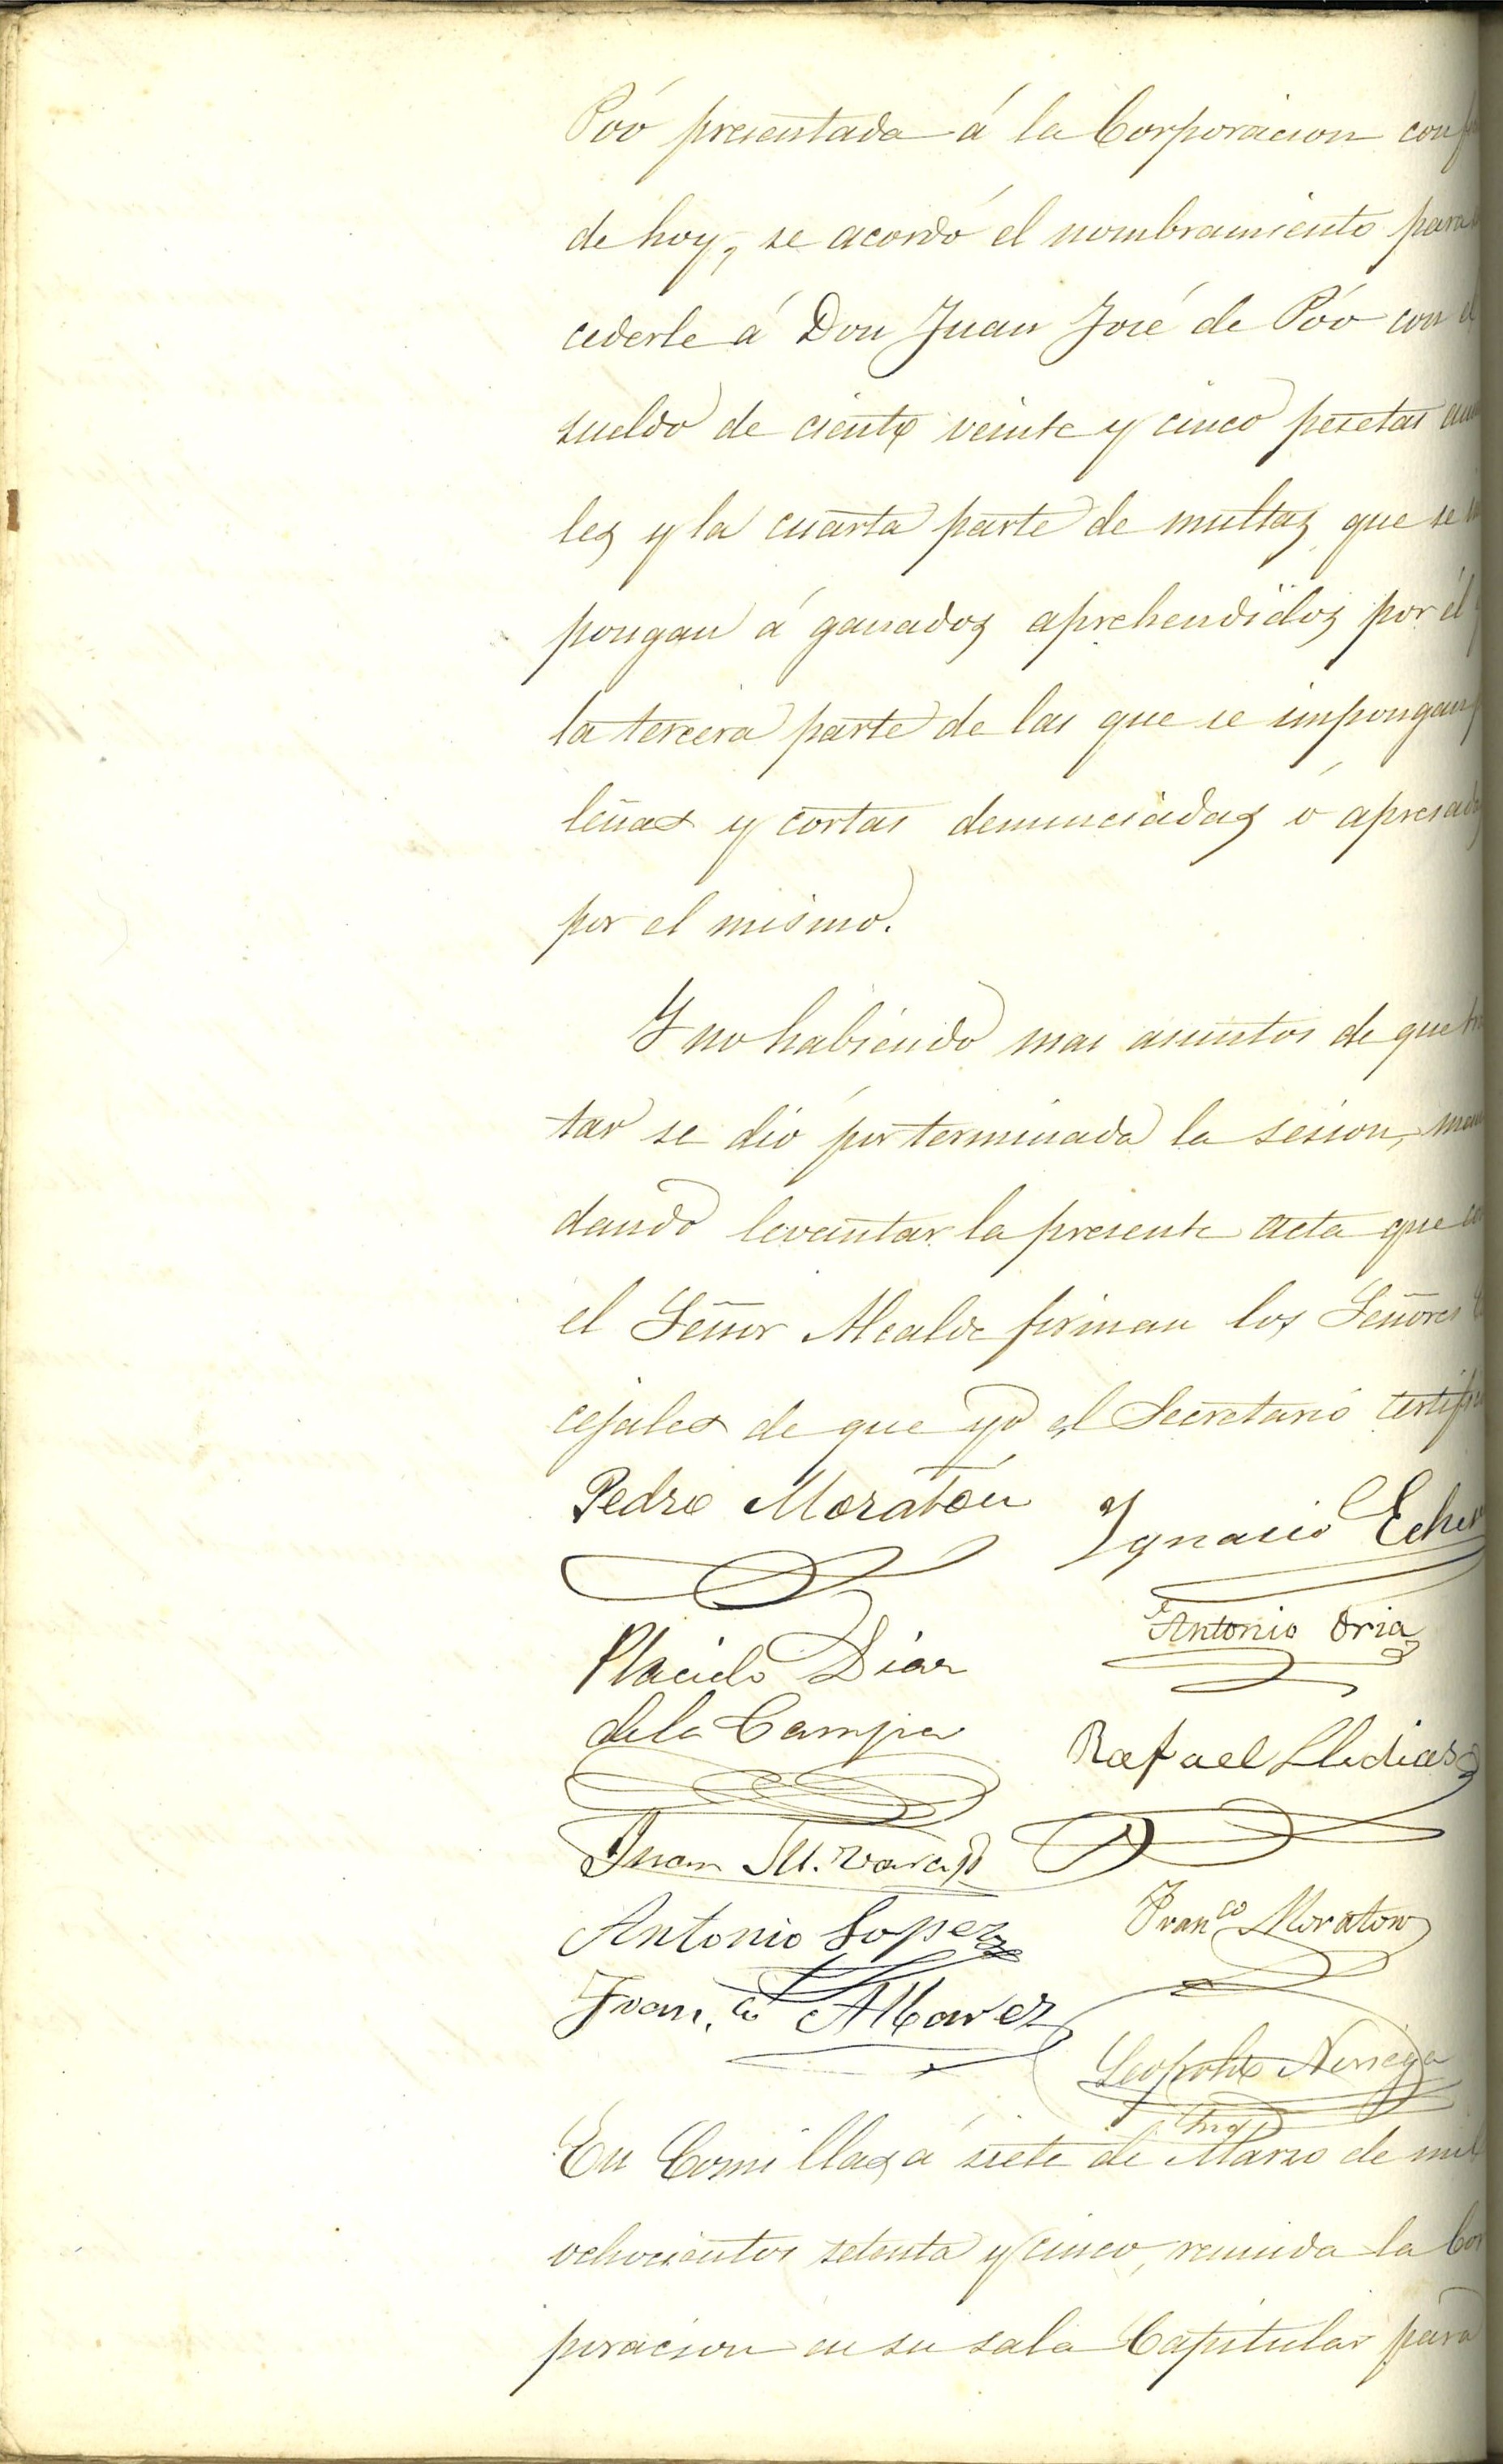 Póo presentada á la Corporacion con
de hoy, se acordó el nombramiento para
cederle á Don Juan José de Póo con el
sueldo de ciento veinte y cinco pesetas
les y la cuarta parte de multas que se
pongan á ganados aprehendidos por él
la tercera parte de las que se impongan
leñas y cortas denunciadas ó apresad
por el mismo.
Y no habiendo mas asuntos de que
tar se dió por terminada la sesion, man
dando levantar la presente acta que
el Señor Alcalde firman los Señores
cejales de que yo el Secretario certifi
Pedro Moratón
Ignacio Eche
Placido Diaz
Antonio Oria
de la Campa
Rafael Lledias
Juan M.
Antonio Lopez
Fran.co Moraton
Fran.co Alvarez
Leopoldo Noriega
En Comillas á siete de Marzo de mil
ochocientos setenta y cinco, reunida la Cor
poracion en su sala Capitular para